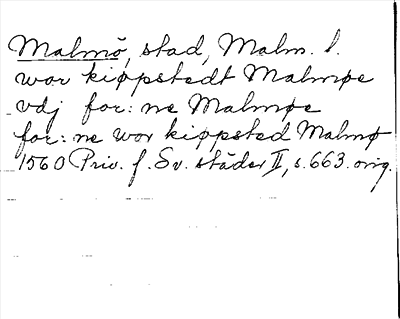 Malmö, stad, Malm. l.
wor kiøppstedt Malmøe
vdj for: ne Malmøe
for: ne wor kiøpsted Malmø
1560 Priv. f. Sv. städer II, s. 663. orig.